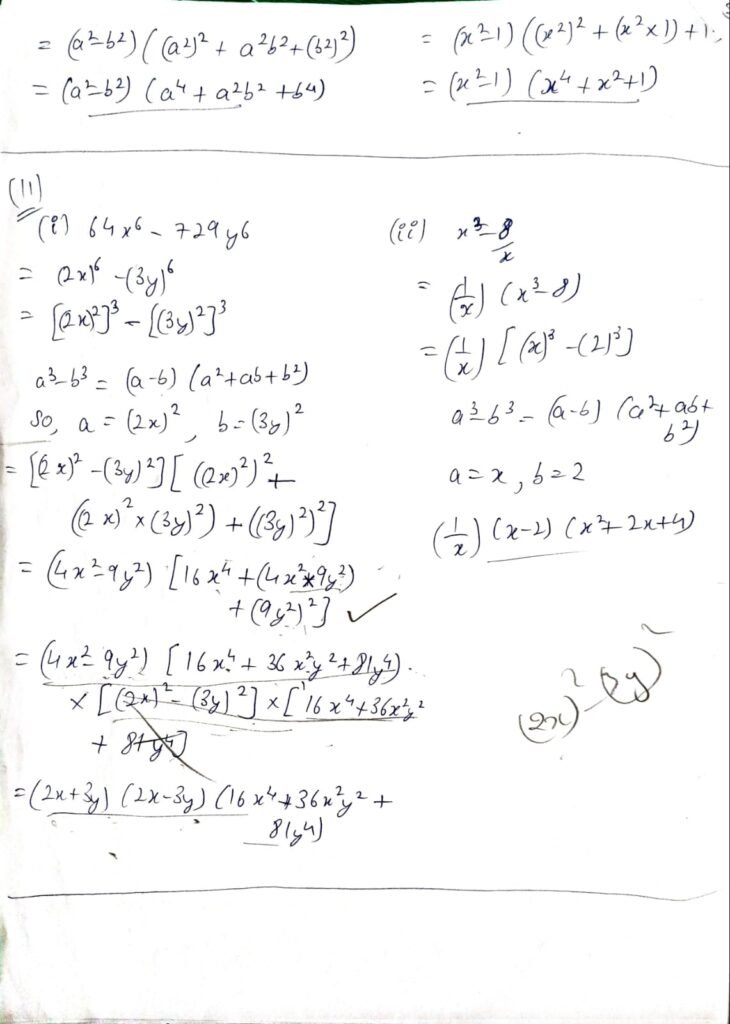 = (a²-b²) ((a²)² + a²b²+(b²)²)
= (a²-b²) (a⁴ + a²b² + b⁴)
= (x²-1) ((x²)² + (x²×1) +1
= (x²-1) (x⁴ + x²+1)
(11)
(i) 64x⁶ - 729y⁶
= (2x)⁶ - (3y)⁶
= [(2x)²]³ - [(3y)²]³
a³-b³ = (a-b) (a²+ab+b²)
So, a = (2x)², b = (3y)²
= [(2x)² - (3y)²] [ ((2x)²)² +
((2x)² × (3y)²) + ((3y)²)²]
= (4x²-9y²) [16x⁴ + (4x²×9y²)
+ (9y²)²] ✓
= (4x²-9y²) [16x⁴ + 36x²y² + 81y⁴).
× [(2x)² - (3y)²] × [16x⁴+36x²y²
+ 81y⁴]
= (2x+3y) (2x-3y) (16x⁴+36x²y² +
81y⁴)
(ii) x³-8/x
= (1/x) (x³-8)
= (1/x) [(x)³ - (2)³]
a³-b³ = (a-b) (a²+ab+
b²)
a = x, b = 2
(1/x) (x-2) (x²+2x+4)
(2x)² - (3y)²